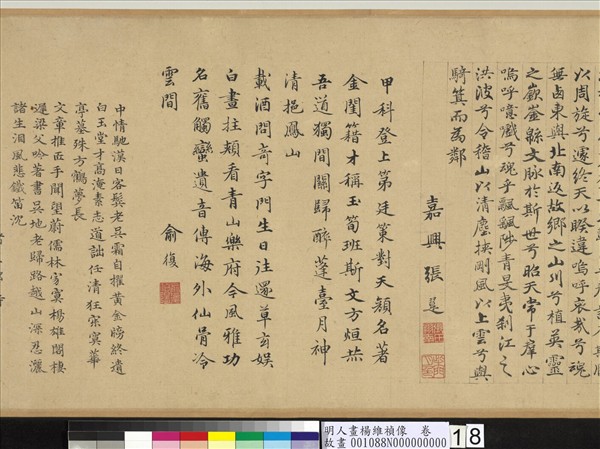 以周旋兮遂終天以睽違嗚呼哀哉兮魂
無鹵東興北南返故鄉之山川兮植英靈
之嶔崟緜文脉於斯世兮昭天常于羣心
嗚呼噫嚱兮魂乎飄飄陟青旻夷刹江之
洪波兮令稽山以清塵挾剛風以上雲兮與
騎箕而為鄰
嘉興張
甲科登上第廷策對天顏名著
金閨籍才稱玉筍班斯文方烜赫
吾道獨間關歸醉蓬臺月神
清挹鳳山
載酒問奇字門生日往還草玄娛
白晝拄頰看青山樂府今風雅功
名舊觸蠻遺音傳海外仙骨冷
雲間
俞復
申情馳漢日客鬢老吳霜自摧黃金牓終遺
白玉堂才高淹素志道詘任清狂寂寞華
亭墓殊方鶴夢長
文章推匠手聞望蔚儒林寂寞楊雄閣棲
遲梁父吟著書吳地老歸路越山深忍灑
諸生淚風悲鐵笛沉
明人畫楊維禎像 卷
故畫 001088N000000000
18